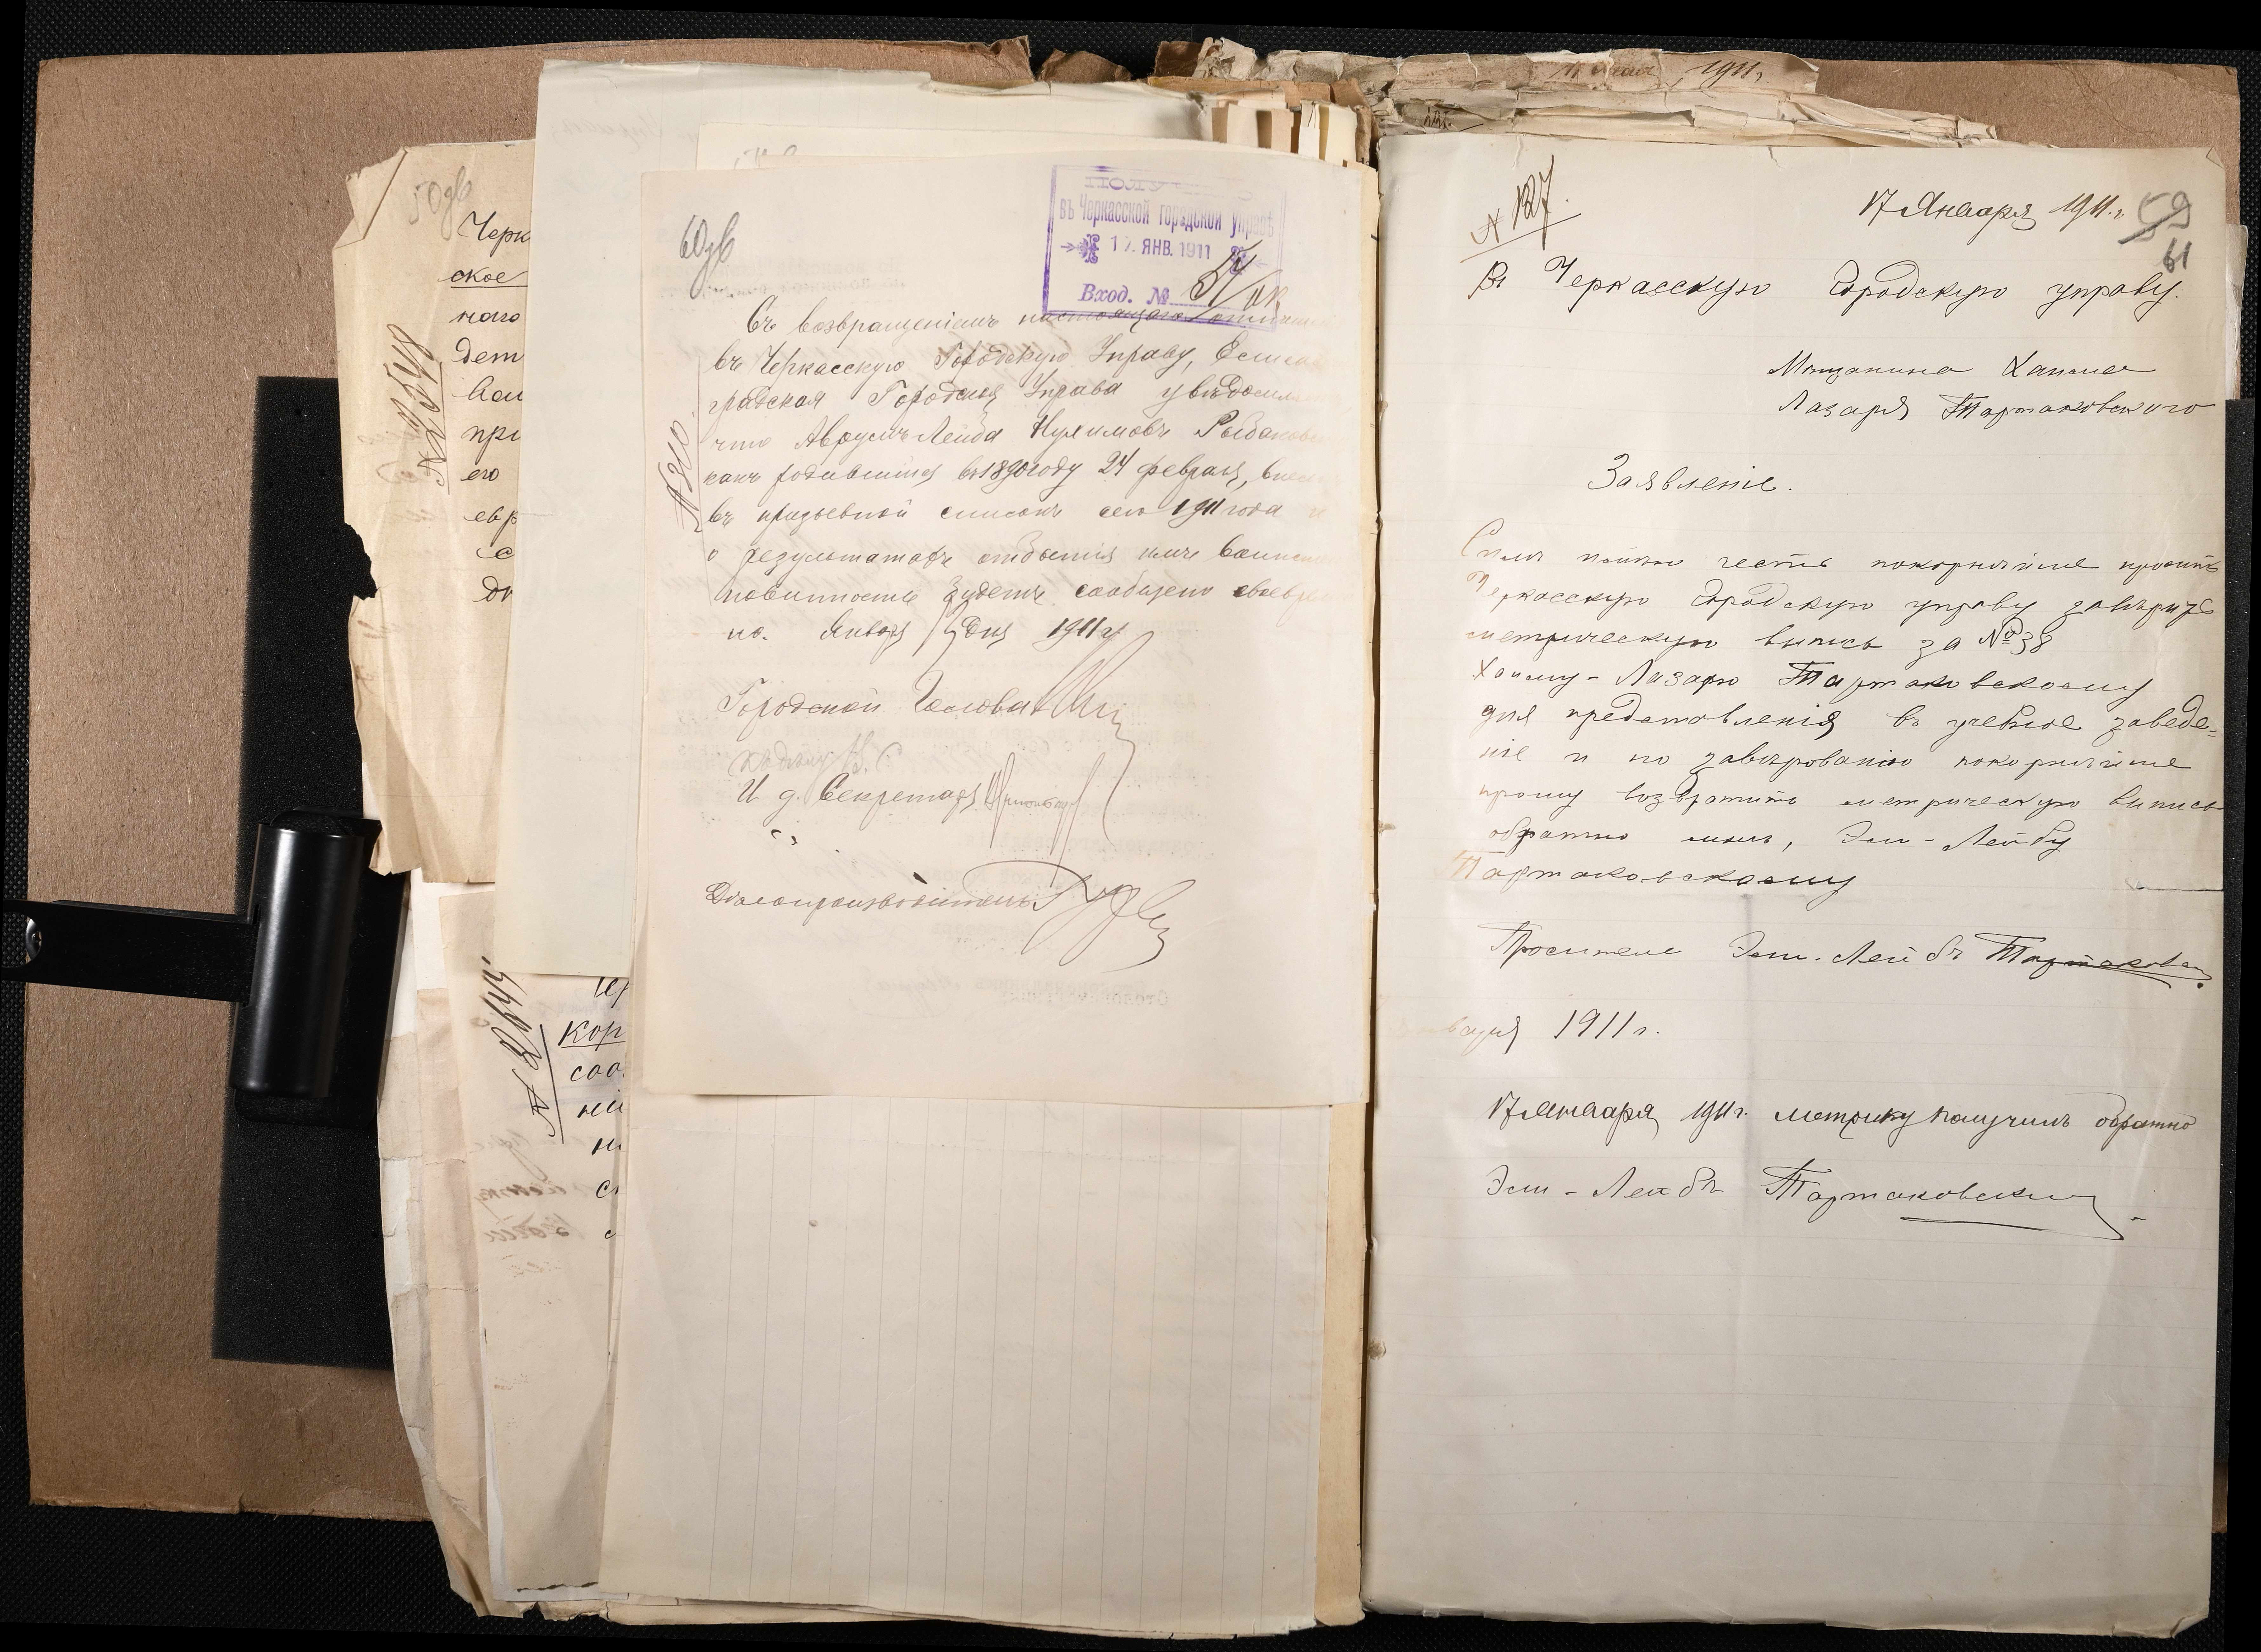 50 об
Черк
ское
наго
дет
вои
при
его
евр
са
№ 23548
№
кор
соо
ній
60 об
въ Черкасской городской управѣ
17. ЯНВ. 1911
Вход. №
Съ возвращеніемъ настоящаго
въ Черкасскую Городскую Управу,
градская Городская Управа увѣдомля
что Аврумъ Лейба Нухимовъ Рыбаков
какъ родившійся въ 1890 году 24 февраля, внес
въ призывной списокъ сего 1911 года и
о результатахъ отбытія имъ воинск
повинности будетъ сообщено своевр
но. Января дня 1911 г.
№ 310.
Городской Голова
И. д. Секретаря
Дѣлопроизводитель
1911 г.
№ 127.
17 Января 1911 г.
59
61
Въ Черкасскую Городскую управу.
Мѣщанина Хаима
Лазаря Тартаковскаго
Заявленіе.
Симъ имѣю честь покорнѣйше просить
Черкасскую Городскую управу завѣрить
метрическую выпись за № 38
Хаиму-Лазарю Тартаковскому
для представленія въ учебное заведе-
ніе и по завѣрованію покорнѣйше
прошу возвратить метрическую выпись
обратно мнѣ, Эли-Лейбу
Тартаковскому
Проситель Эли-Лейбъ Тартаковск
января 1911 г.
17 Января 1911 г. метрику получилъ обратно
Эли-Лейбъ Тартаковскій